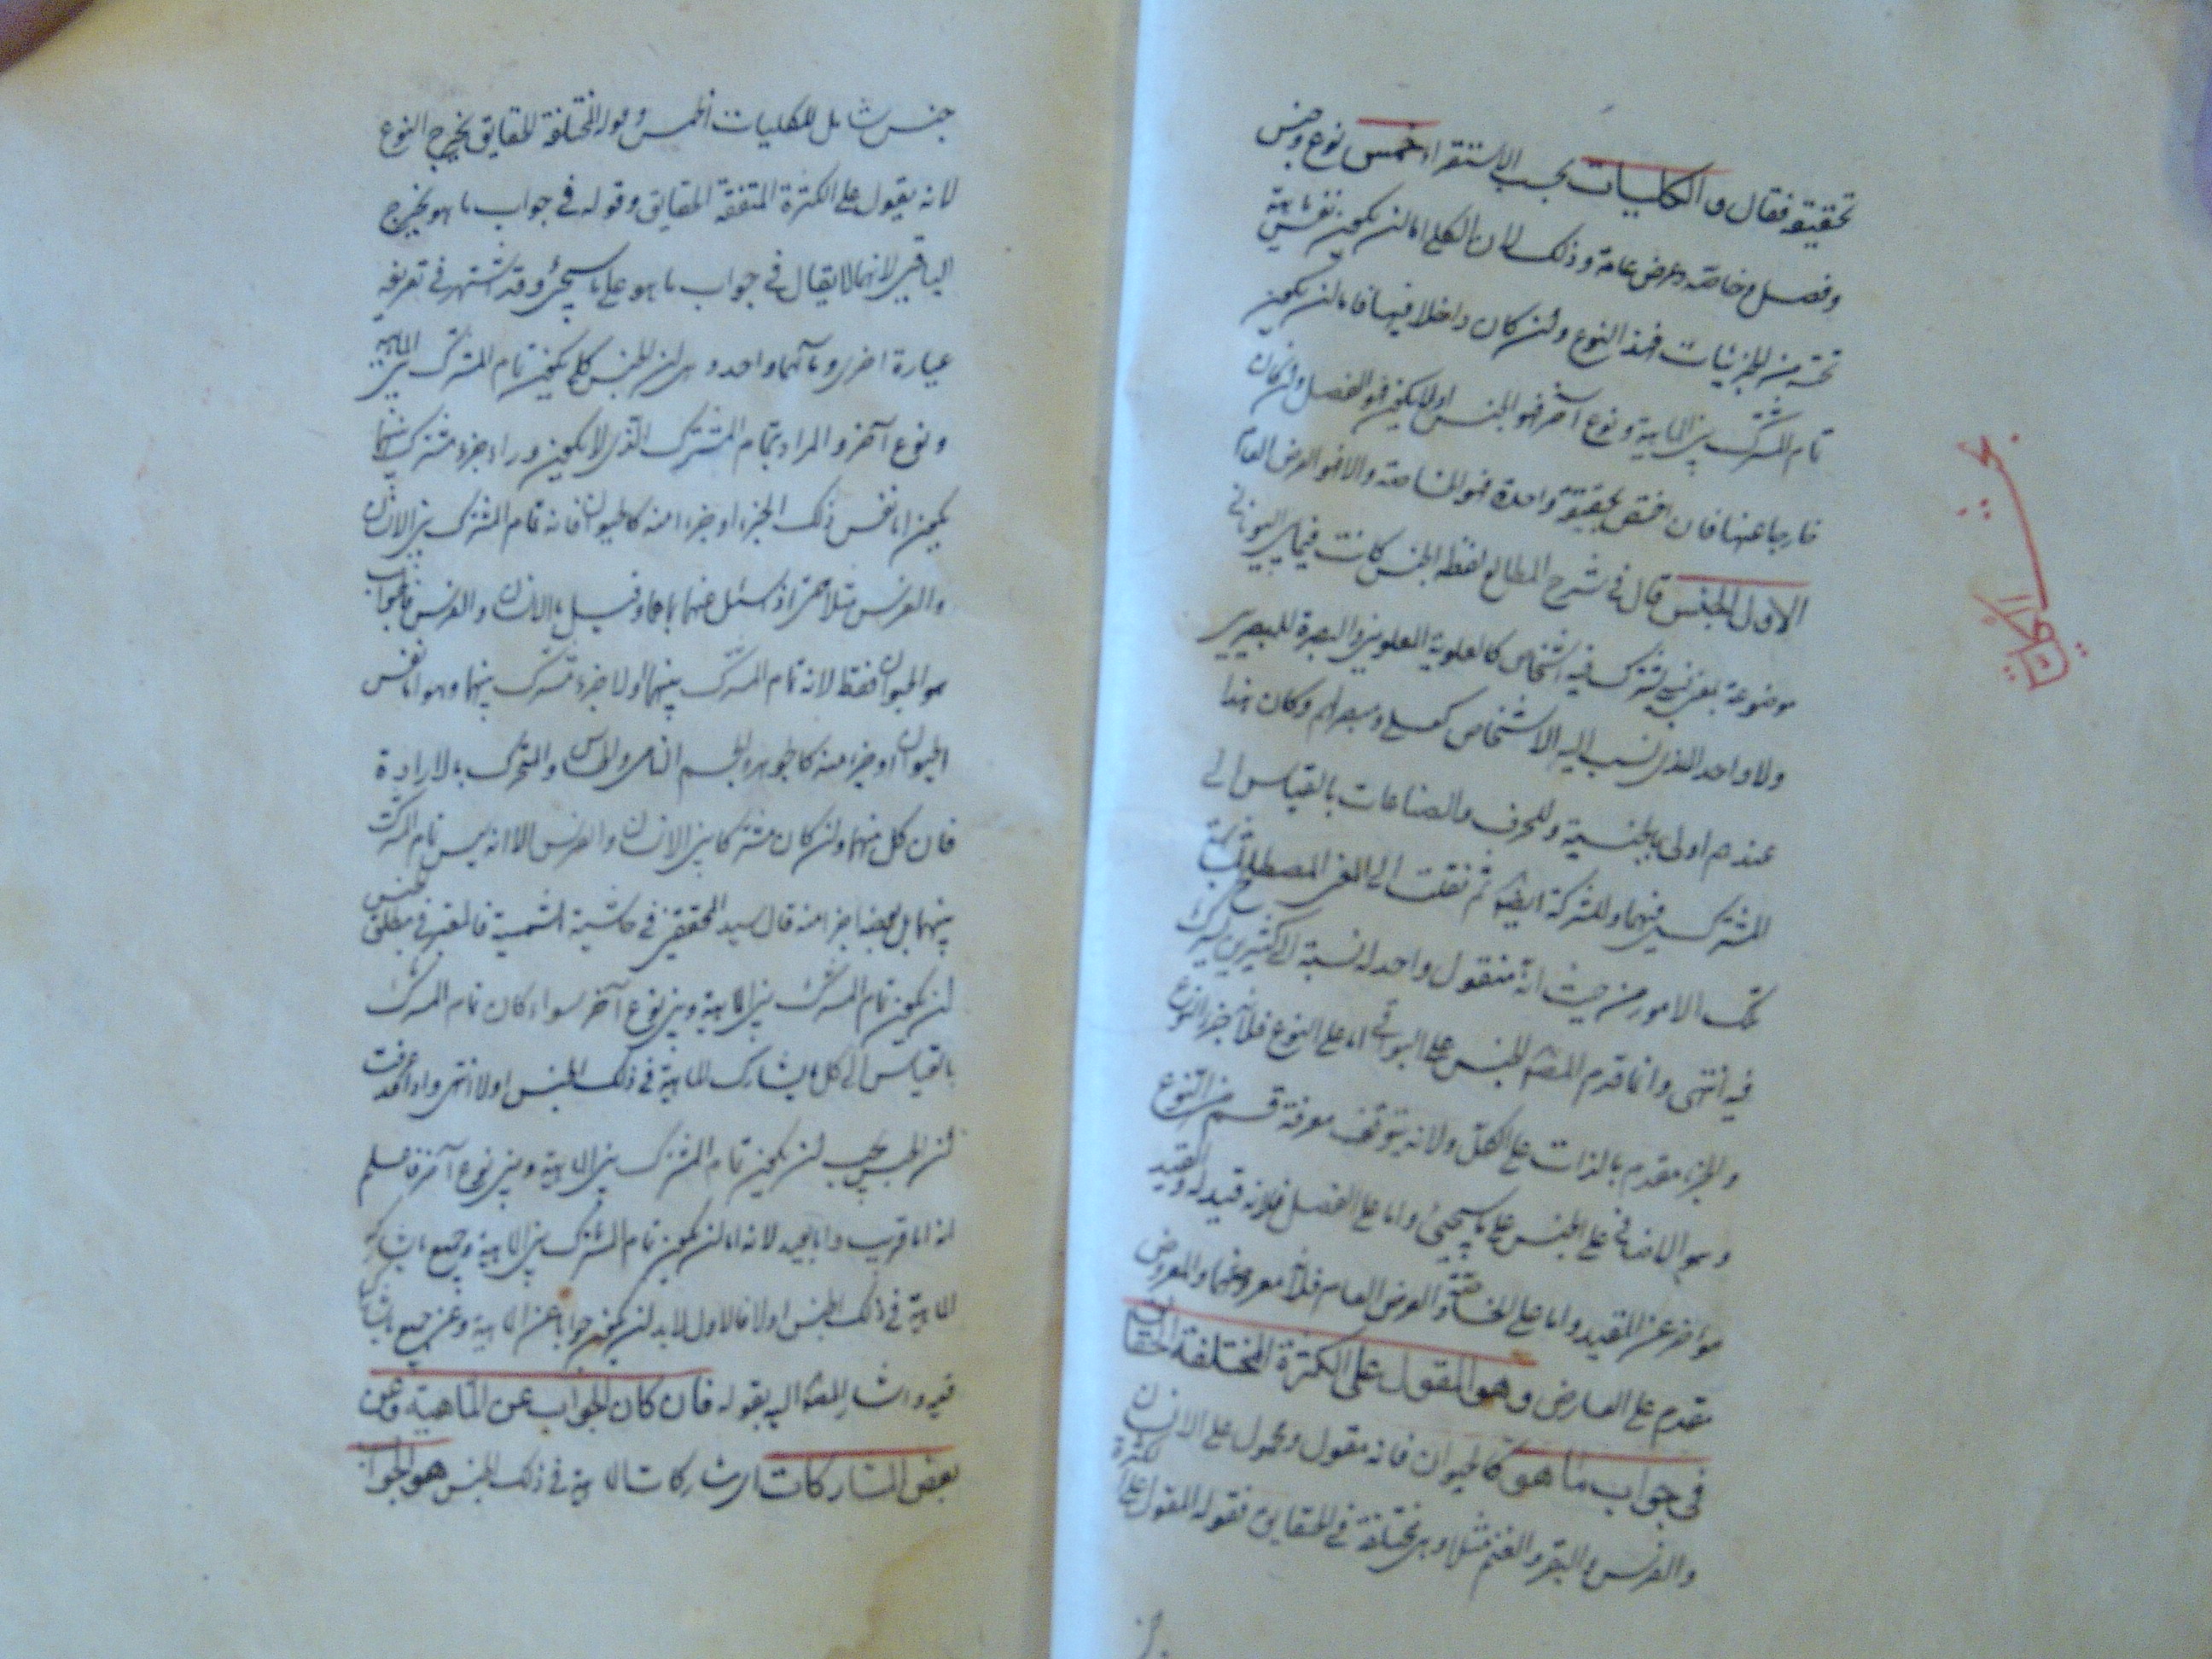 تحقيقه فقال والكليات بحسب الاستقراء خمس نوع وجنس
وفصل وخاصة وعرض عام وذلك لان الكلى اما لن يكون نفس ماهية
تحته من الجزئيات فهذا النوع ولن كان داخلا فيها فاما لن يكون
تمام المشترك بين الماهية ونوع آخر فهو الجنس اولا يكون فهو الفصل ولن كان
خارجا عنها فان اختص بحقيقة واحدة فهو الخاصة والا فهو العرض العام
الاول الجنس قال فى شرح المطالع لفظ الجنس كانت فيما بين اليونانى
موضوعة لمعنى يشترك فيه اشخاص كالعلوية للعلويين والبصرة للبصريين
ولا واحد الذى نسب اليه الاشخاص كعلى وبصر لهم وكان هذا
عندهم اولى بالجنسية وللحرف والصناعات بالقياس الى
المشترك فيها وللشركة ايضا ثم نقلت الى المعنى المصطلح
تلك الامور من حيث انه منقول واحد له نسبة الى كثيرين يشترك
فيه انتهى وانما قدم المص الجنس على البواقى اما على النوع فلانه جزء النوع
والجزء مقدم بالذات على الكل ولانه يتوقف معرفة قسم من النوع
وهو الاضافى على الجنس على ما سيجئ واما على الفصل فلانه قيد له والقيد
مؤخر عن المقيد واما على الخاصة والعرض العام فلانه معروضهما والمعروض
مقدم على العارض وهو المقول على الكثرة المختلفة الحقائق
فى جواب ما هو كالحيوان فانه مقول ومحمول على الانسان
والفرس والبقر والغنم مثلا وهى مختلفة فى الحقايق فقوله المقول على الكثرة
جنس
جنس شامل للكليات الخمس وقوله المختلفة الحقايق يخرج النوع
لانه يقول على الكثرة المتفقة الحقايق وقوله فى جواب ما هو يخرج
الباقى لانهما لا يقال فى جواب ما هو على ما سيجئ وقد اشتهر فى تعريفه
عبارة اخرى ومآلهما واحد وهى لن الجنس كلى يكون تمام المشترك بين الماهية
ونوع آخر والمراد بتمام المشترك الذى لا يكون وراءه جزء مشترك بينهما
يكون اما نفس ذلك الجزء او جزءا منه كالحيوان فانه تمام المشترك بين الانسان
والفرس مثلا اذ سئل عنهما بما هما وقيل ما الانسان والفرس فالجواب
هو الحيوان فقط لانه تمام المشترك بينهما ولا جزء مشترك بينهما وهو اما نفس
الحيوان او جزء منه كالجوهر والجسم النامى والحساس والمتحرك بالارادة
فان كل منهما ولن كان مشتركا بين الانسان والفرس الا انه ليس تمام المشترك
بينهما بل بعضا جزء منه قال سيد المحققين فى حاشية الشمسية فالمعتبر فى مطلق الجنس
لن يكون تمام المشترك بين الماهية وبين نوع آخر سواء كان تمام المشترك
بالقياس الى كل ما يشارك الماهية فى ذلك الجنس اولا انتهى واذا عرفت
لن الجنس يجب لن يكون تمام المشترك بين الماهية وبين نوع آخر فاعلم
انه اما قريب واما بعيد لانه اما لن يكون تمام المشترك بين الماهية وجميع ما يشارك
الماهية فى ذلك الجنس اولا فالاول لا بد لن يكون جوابا عن الماهية وعن جميع ما يشاركها
فيه واشار المص اليه بقوله فان كان الجواب عن الماهية وعن
بعض المشاركات اى مشاركات الماهية فى ذلك الجنس هو الجواب